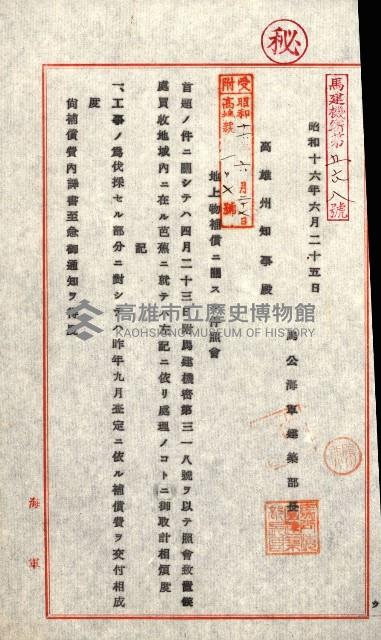 秘
馬建機密第 八號
昭和十六年六月二十五日
馬公海軍建築部長
高雄州知事殿
受附
昭和 六月 日
高 號
地上物補償ニ關ス 件照會
首題ノ件ニ關シテハ四月二十三日附馬建機密第三一八號ヲ以テ照會致置候
處買收地域内ニ在ル芭蕉ニ就テハ左記ニ依リ處理ノコトニ御取計相煩度
記
一、工事ノ爲伐採セル部分ニ對シテハ昨年九月査定ニ依ル補償費ヲ交付相成
度
尚補償費内譯書至急御通知ヲ得度
海軍
高雄市立歷史博物館
KAOHSIUNG MUSEUM OF HISTORY